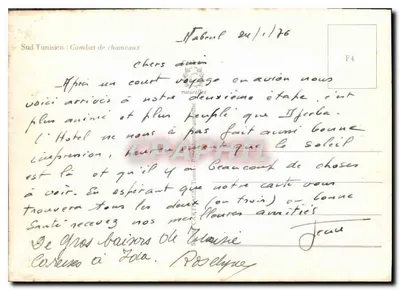 Sud Tunisien : Combat de chameaux
F4
Nabeul 24/1/76
Chers amis
Après un court voyage en avion nous
voici arrivés à notre deuxième étape, c'est
plus animé et plus peuplé que Djerba.
L'Hotel ne nous à pas fait aussi bonne
impression, heureusement que le soleil
est là et qu'il y a beaucoup de choses
à voir. En espérant que notre carte vous
trouvera tous les deux (ou trois) en bonne
Santé recevez nos meilleures amitiés
Jean
De Gros baisers de Tunisie
Caresses à
Roselyne